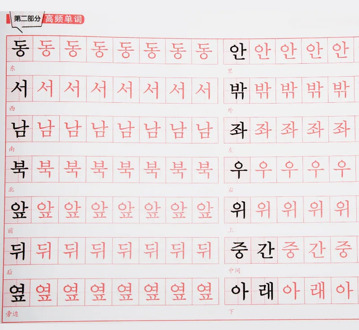 第二部分 高频单词
동 동 동 동 동 동 동 동
东
서 서 서 서 서 서 서 서
西
남 남 남 남 남 남 남 남
南
북 북 북 북 북 북 북 북
北
앞 앞 앞 앞 앞 앞 앞 앞
前
뒤 뒤 뒤 뒤 뒤 뒤 뒤 뒤
后
옆 옆 옆 옆 옆 옆 옆 옆
旁边
안 안 안 안 안
里
밖 밖 밖 밖 밖
外
좌 좌 좌 좌 좌
左
우 우 우 우 우
右
위 위 위 위 위
上
중 간 중 간 중
中间
아 래 아 래 아
下